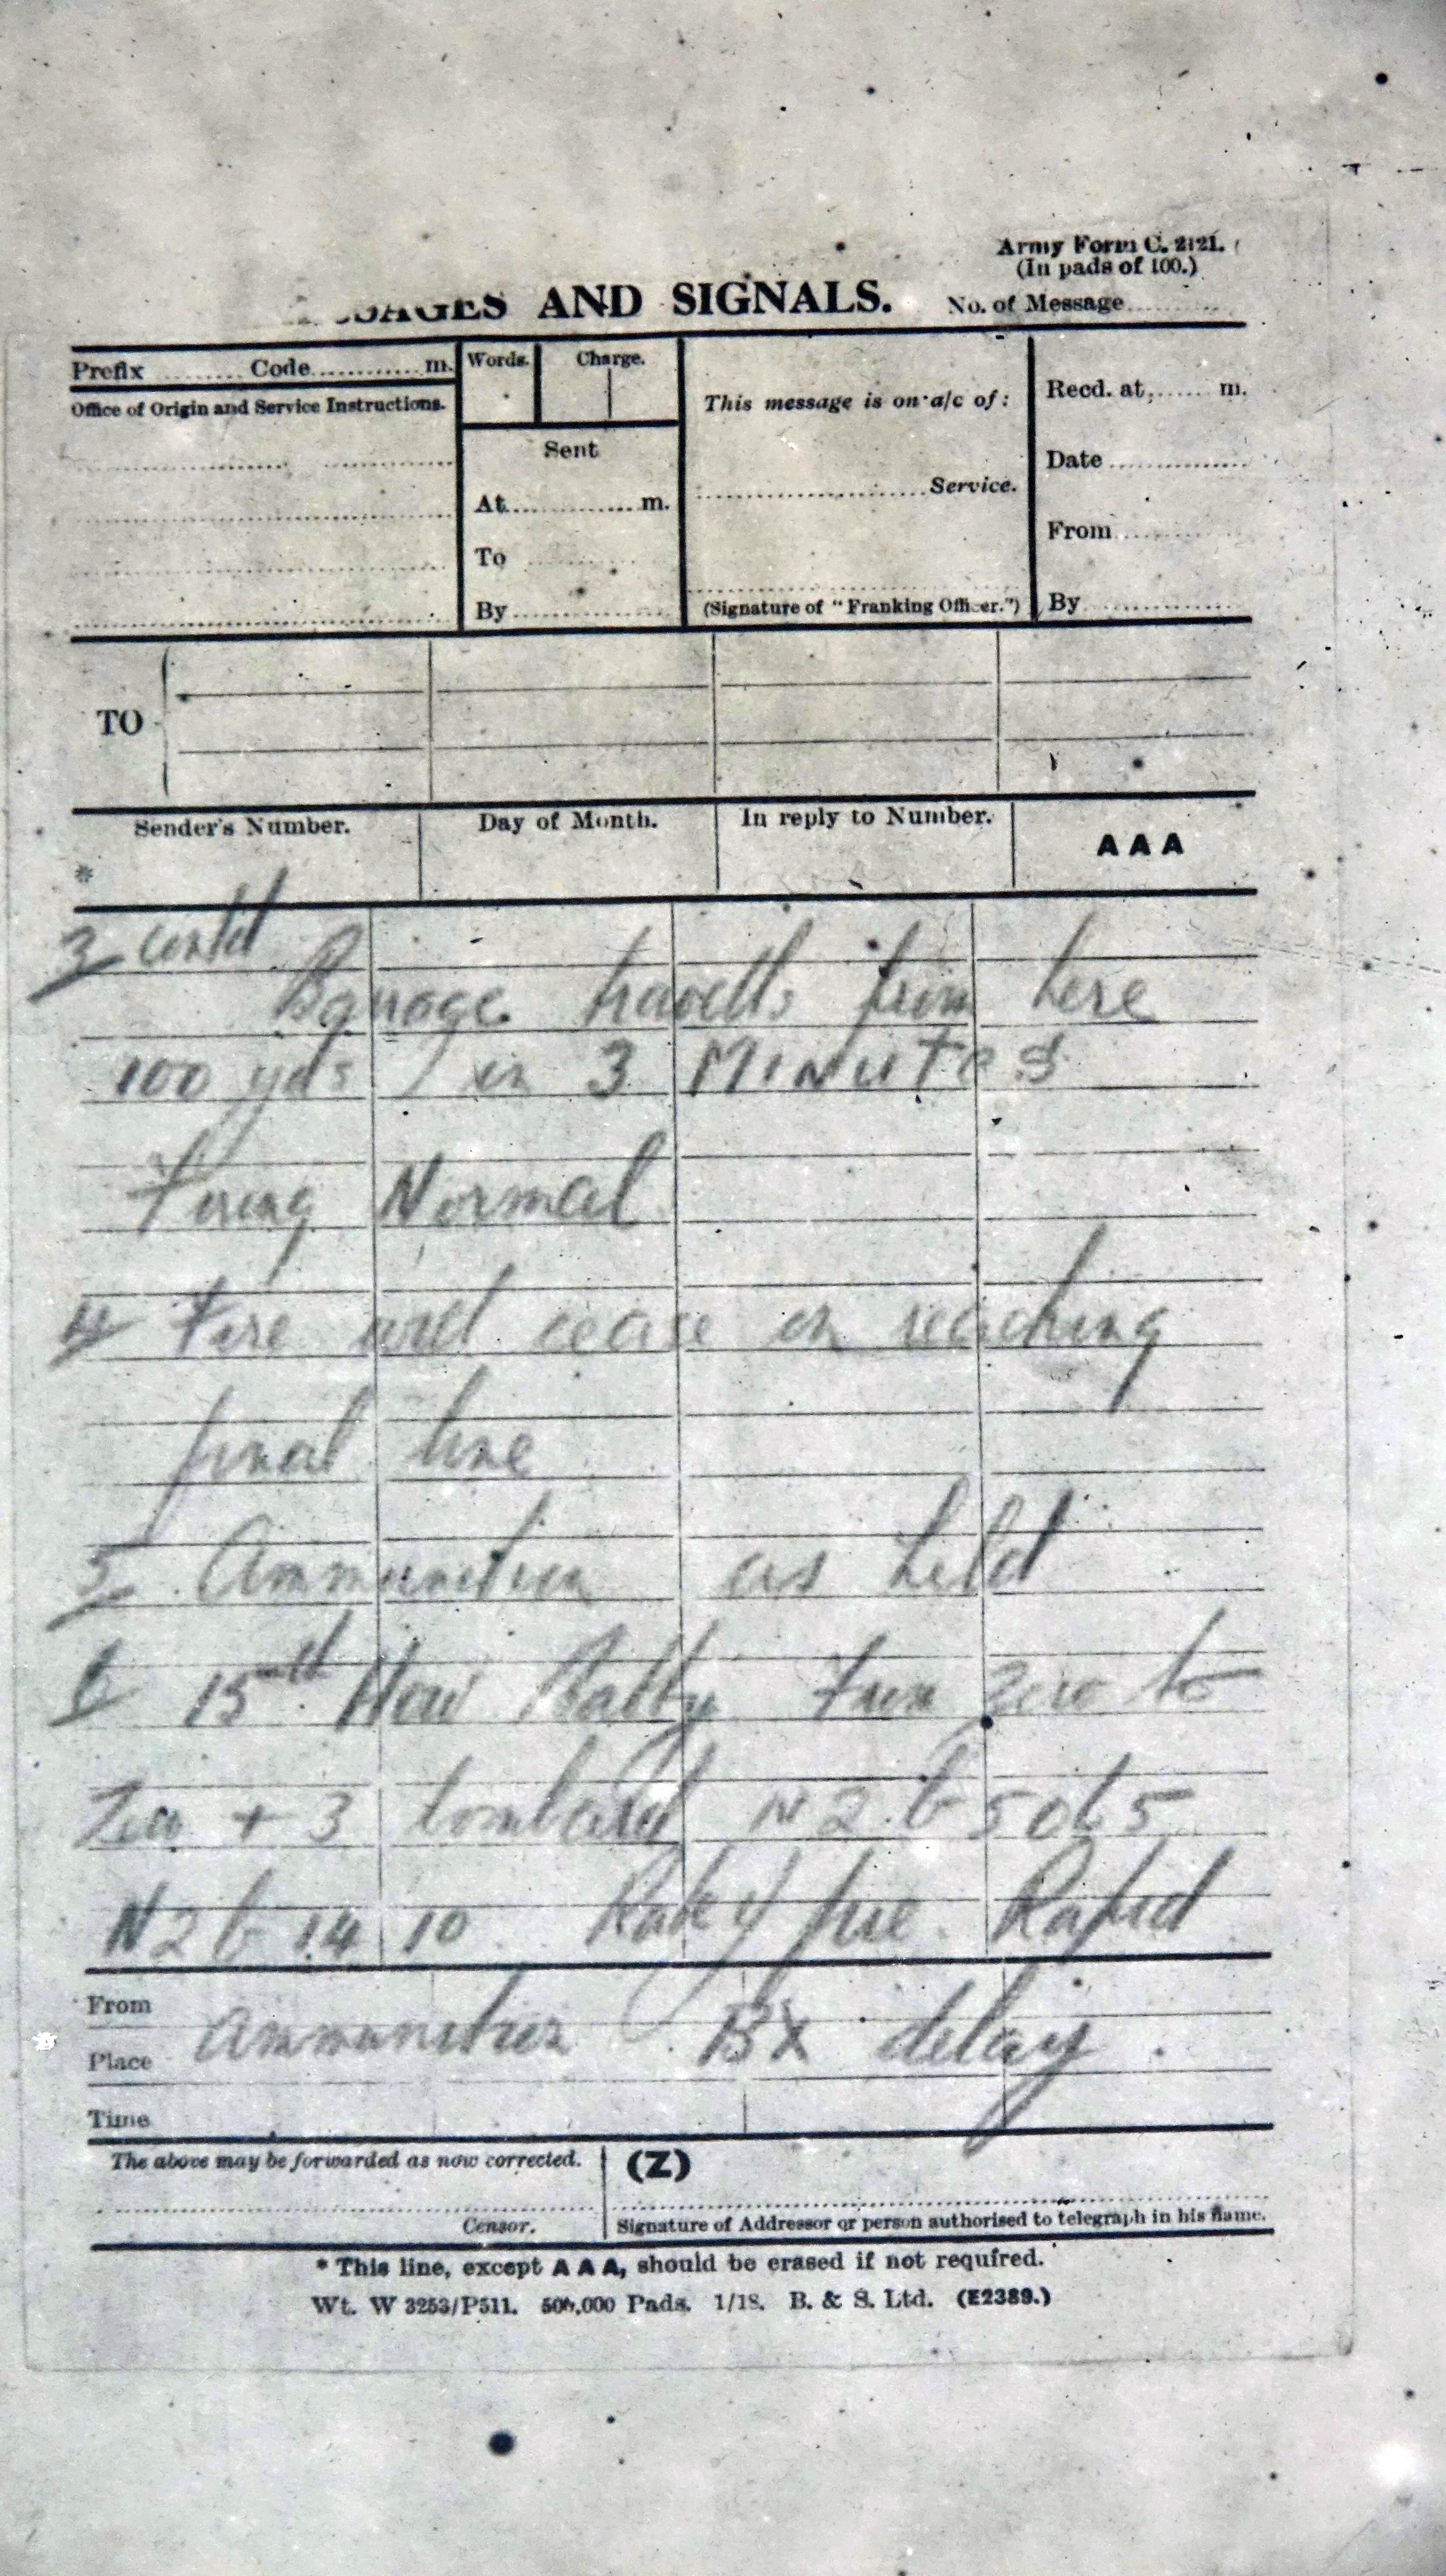 Army Form C. 2121.
(In pads of 100.)
SAGES AND SIGNALS. No. of Message
Prefix Code m. Words. Charge. This message is on a/c of: Recd. at m.
Office of Origin and Service Instructions.
Sent Date
At m. Service.
To From
By (Signature of "Franking Officer.") By
TO
Sender's Number. Day of Month. In reply to Number. AAA
*
3 contd
Barrage travells from here
100 yds in 3 Minutes
Firing Normal
4 Fire will cease on reaching
final line
5 Ammunition as held
6 15th How Batty From zero to
Zero + 3 bombard N 2 b
N 2 b 14 10 Rate of fire Rapid
From
Ammunition BX delay.
Place
Time
The above may be forwarded as now corrected. (Z)
Censor. Signature of Addressor or person authorised to telegraph in his name.
* This line, except AAA, should be erased if not required.
Wt. W 3253/P511. 500,000 Pads. 1/18. B. & S. Ltd. (E2389.)